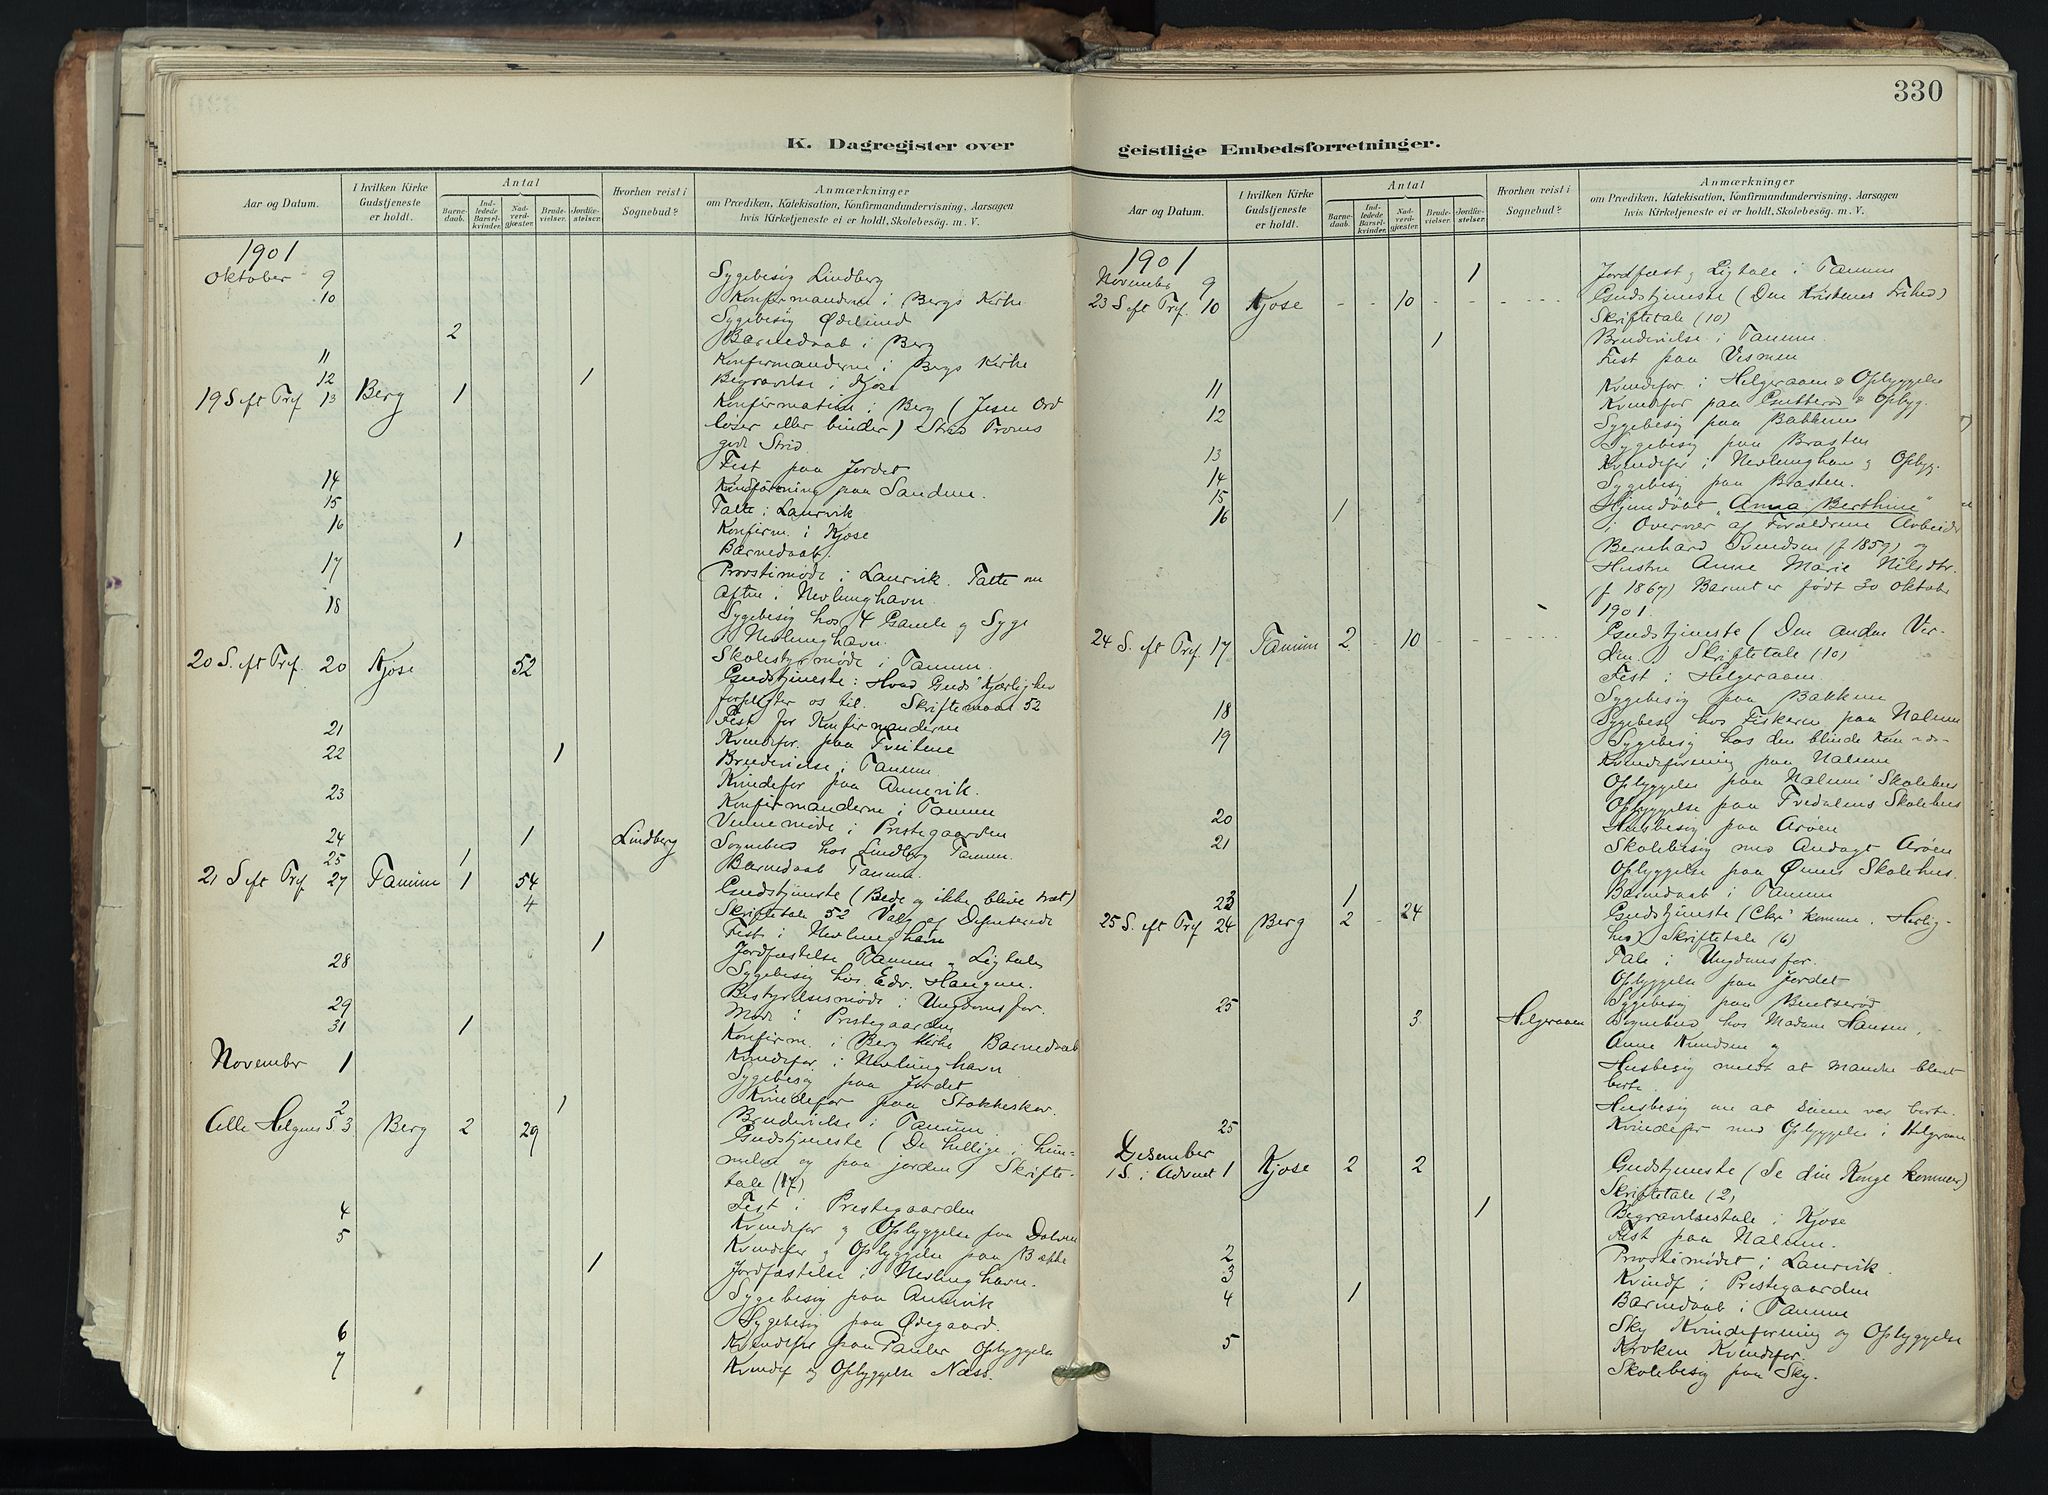 330
K. Dagregister over
geistlige Embedsforretninger.
Aar og Datum.
I hvilken Kirke Gudstjeneste er holdt.
Antal
Barnedaab.
Indledede Barselkvinder.
Nadverdgjæster.
Brudevielser.
Jordfæstelser.
Hvorhen reist i Sognebud?
Anmærkninger
om Prædiken, Katekisation, Konfirmandundervisning, Aarsagen
hvis Kirketjeneste ei er holdt, Skolebesög. m. V.
1901
Oktober 9 Sygebesög Lindberg
10 Konfirmanderne i Bergs Kirke
Sygebesög Ødelund
2 Barnedaab i Berg
11 Konfirmanderne i Bergs Kirke
12 1 Begravelse i Kjose
19 S eft Tref 13 Berg 1 Konfirmation i Berg (Jesu Ord
löser eller binder) Strid Troens
gode Strid
Fest paa Jordet
14 Kvindforening paa Sandum.
15 Talte i Laurvik
16 Konfirm. i Kjose
1 Barnedaab.
17 Provstimöde i Laurvik. Talte om
Aften i Nevlunghavn
18 Sygebesög hos 4 Gamle og Syge
i Nevlunghavn.
Skolestyrmöde i Tanum.
20 S. eft Tref. 20 Kjose 52 Gudstjeneste: Hvad Guds Kjærlighed
forpligter os til. Skriftemaal 52
Fest for Konfirmanderne
21 Kvindefor. paa Tveitene
22 1 Brudevielse i Tanum.
Kvindefor paa Annevik.
23 Konfirmanderne i Tanum
Vennemöde i Prestegaarden
24 1 Lindberg Sognebud hos Lindberg Tanum.
25 1 Barnedaab Tanum.
21 S eft Tref 27 Tanum 1 54 Gudstjeneste (Bede og ikke blive træt)
4 Skriftetale 52 Valg af Deputerede
Fest i Nevlunghavn
1 Jordfæstelse Tanum og Ligtale
28 Sygebesög hos Edv. Haugen.
Bestyrelsesmöde i Ungdomsfor.
29 Möde i Prestegaarden
31 1 Konfirm. i Berg Kirke Barnedaab
November 1 Kvindefor. i Nevlunghavn
Sygebesög paa Jordet
Kvindefor paa Stokkeskor.
2 1 Brudevielse i Tanum.
Alle Helgens S 3 Berg 2 29 Gudstjeneste (De hellige i him-
melen og paa jorden) Skrifte-
tale (17)
Fest i Prestegaarden
4 Kvindefor og Opbyggelse paa Dolven
5 Kvindefor og Opbyggelse paa Bække
1 Jordfæstelse i Nevlunghavn.
Sygebesög paa Annevik
Sygebesög paa Ødegaard.
6 Kvindefor paa Pauler Opbyggelse
7 Kvindef og Opbyggelse Næss.
Aar og Datum.
I hvilken Kirke Gudstjeneste er holdt.
Antal
Barnedaab.
Indledede Barselkvinder.
Nadverdgjæster.
Brudevielser.
Jordfæstelser.
Hvorhen reist i Sognebud?
Anmærkninger
om Prædiken, Katekisation, Konfirmandundervisning, Aarsagen
hvis Kirketjeneste ei er holdt, Skolebesög. m. V.
1901
November 9 1 Jordfæst og Ligtale i Tanum
23 S eft Tref. 10 Kjose 10 Gudstjeneste (Den Kristnes Frihed)
Skriftetale (10)
1 Brudevielse i Tanum.
Fest paa Vesmen
11 Kvindefor. i Helgeraaen & Opbyggelse
12 Kvindefor paa Gutterød & Opbyg.
Sygebesög paa Bakkene
Sygebesög paa Brasten
13 Kvindefor i Nevlunghavn og Opbyg.
14 Sygebesög paa Brasten.
15
16 1 Hjemdöbt "Anna Berthine"
i Overvær af Forældrene Arbeider
Bernhard Svendsen (f 1857) og
Hustru Anne Marie Nilsdtr.
(f 1867) Barnet er födt 30 oktober
1901.
24 S. eft Tref. 17 Tanum 2 10 Gudstjeneste (Den anden Ver-
den.) Skriftetale (10)
Fest i Helgeraaen.
Sygebesög paa Bakkene
18 Sygebesög hos Fiskeren paa Nalum
19 Sygebesög hos den blinde
Kvindeforening paa Nalum
Opbyggelse paa Nalum Skolehus
Opbyggelse paa Tvedalens Skolehus
20 Husbesög paa Arøen
21 Skolebesög med Andagt Arøen
Opbyggelse paa Ønnes Skolehus.
23 1 Barnedaab i Tanum
25 S. eft Tref 24 Berg 2 24 Gudstjeneste (Chr. komme. Herlig-
hed) Skriftetale (6)
Tale i Ungdomsfor.
Opbyggelse paa Jordet
25 Sygebesög paa Buntserød
3 Helgeraaen Sognebud hos Madam Hansen,
Anne Knudsen og
Husbesög meldt at Manden blevet
borte.
Husbesög om at Sönnen var borte.
25 Kvindefor med Opbyggelse i Helgeraaen
Desember
1 S. i Advent 1 Kjose 2 2 Gudstjeneste (Se din Konge kommer)
Skriftetale (2)
1 Begravelsestale i Kjose
Fest paa Nalum.
2 Provstimödet i Laurvik.
3 Kvindf i Prestegaarden
4 1 Barnedaab i Tanum
Sky Kvindeforening og Opbyggelse
5 Kroken Kvindefor.
Skolebesög paa Sky.